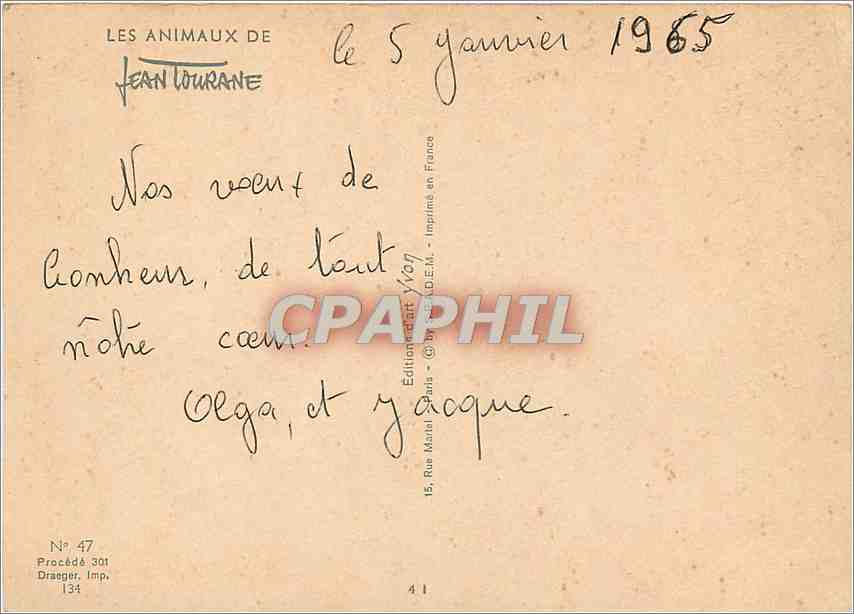 LES ANIMAUX DE
JEAN TOURANE
le 5 Janvier 1965
Nos vœux de
bonheur, de tout
nôtre cœur.
Olga, et Jacque.
Editions d'art Yvon
15, Rue Martel - Paris - © by S.P.A.D.E.M. - Imprimé en France
CPAPHIL
N° 47
Procédé 301
Draeger, Imp.
134
4 1